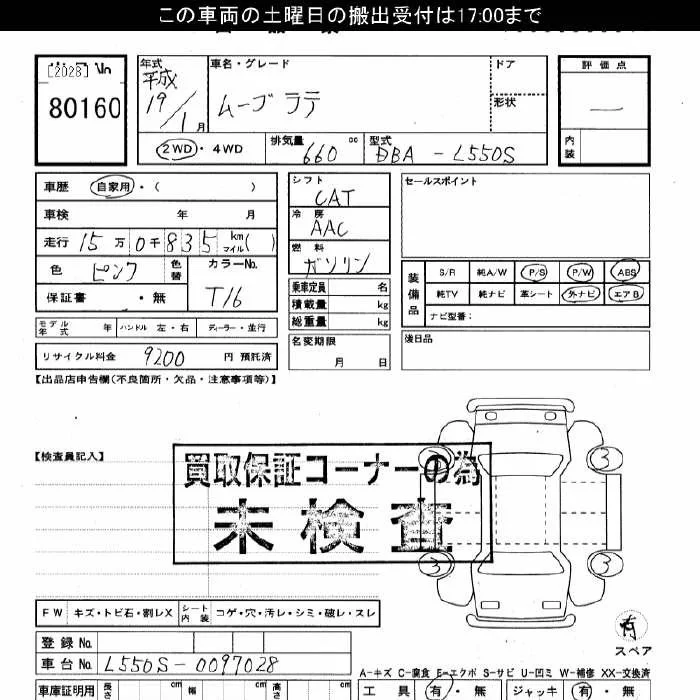 この車両の土曜日の搬出受付は17:00まで
[2028]
80160
年式
平成
19/1月
車名・グレード
ムーヴ ラテ
ドア
形状
評価点
—
内装
2WD・4WD
排気量
660 cc
型式
DBA-L550S
車歴 自家用・( )
車検 年 月
走行 15万0千835 km マイル( )
色 ピンク 色替
カラーNo.
T16
保証書 ・無
モデル年式 年 ハンドル 左・右 ディーラー・並行
リサイクル料金 9200 円 預託済
シフト
CAT
冷房
AAC
燃料
ガソリン
乗車定員 名
積載量 kg
総重量 kg
名変期限
月 日
セールスポイント
装備品
S/R 純A/W P/S P/W ABS
純TV 純ナビ 革シート 外ナビ エアB
ナビ型番:
後日品
【出品店申告欄(不良箇所・欠品・注意事項等)】
【検査員記入】
買取保証コーナーの為
未検査
3 3
3 3
有
スペア
FW キズ・トビ石・割レX シート内装 コゲ・穴・汚レ・シミ・破レ・スレ
登録No.
車台No. L550S-0097028
A-キズ C-腐食 E-エクボ S-サビ U-凹ミ W-補修 XX-交換済
車庫証明用 長さ cm 幅 cm 高さ cm
工具 有・無 ジャッキ 有・無